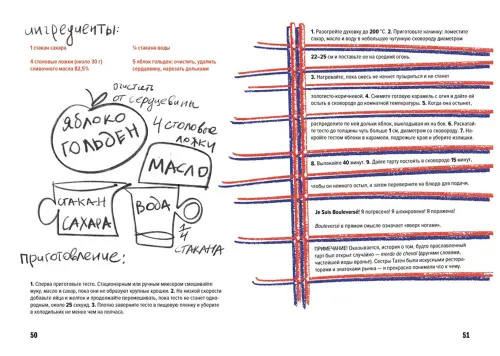 ингредиенты:
1 стакан сахара
4 столовые ложки (около 30 г)
сливочного масла 82,5%
¼ стакана воды
5 яблок гольден: очистить, удалить
сердцевину, нарезать дольками
очистить
от сердцевины
ЯБЛОКО
ГОЛЬДЕН
4 столовые
ложки
МАСЛО
СТАКАН
САХАРА
ВОДА
1/4
СТАКАНА
приготовление:
1. Сперва приготовьте тесто. Стационарным или ручным миксером смешивайте
муку, масло и сахар, пока они не образуют крупные крошки. 2. На низкой скорости
добавьте яйцо и желток и продолжайте перемешивать, пока тесто не станет одно-
родным, около 25 секунд. 3. Плотно заверните тесто в пищевую пленку и уберите
в холодильник не менее чем на полчаса.
50
1. Разогрейте духовку до 200 °C. 2. Приготовьте начинку: поместите
сахар, масло и воду в небольшую чугунную сковороду диаметром
22–25 см и поставьте ее на средний огонь.
3. Нагревайте, пока смесь не начнет пузыриться и не станет
золотисто-коричневой. 4. Снимите готовую карамель с огня и дайте ей
остыть в сковороде до комнатной температуры. 5. Когда она остынет,
распределите по ней дольки яблок, выкладывая их на бок. 6. Раскатай-
те тесто до толщины чуть больше 1 см, диаметром со сковороду. 7. На-
кройте тестом яблоки в карамели, подрежьте края и уберите излишки.
8. Выпекайте 40 минут. 9. Дайте тарту постоять в сковороде 15 минут,
чтобы он немного остыл, а затем переверните на блюдо для подачи.
Je Suis Bouleversé! Я потрясена! Я шокирована! Я поражена!
Bouleversé в прямом смысле означает «вверх ногами».
ПРИМЕЧАНИЕ! Оказывается, история о том, будто прославленный
тарт был открыт случайно — merde de cheval (другими словами,
чистейшей воды вранье). Сестры Татен были искусными рестора-
торами и знатоками рынка — и прекрасно понимали что к чему.
51